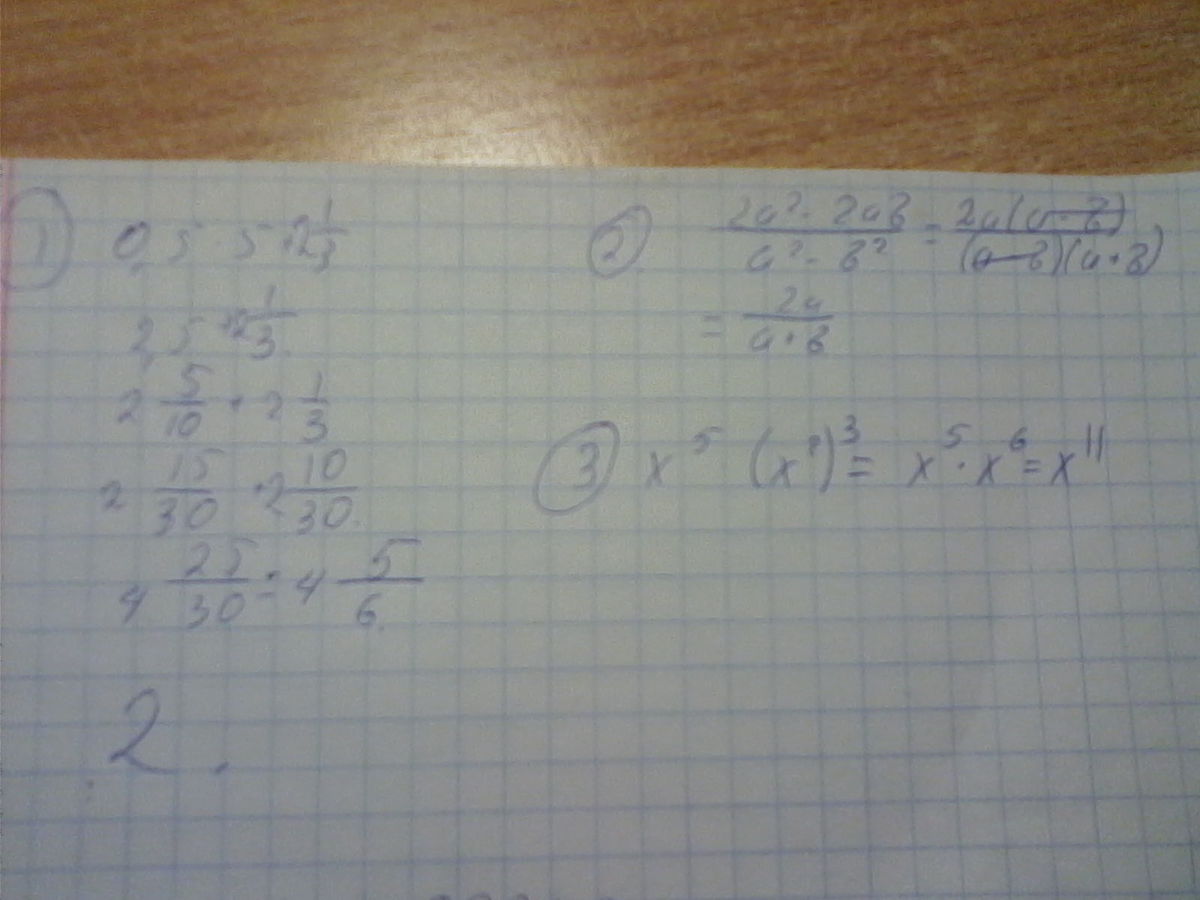 1) 0,5 · 5 + 2 1/3
2,5 + 2 1/3
2 5/10 + 2 1/3
2 15/30 + 2 10/30
4 25/30 = 4 5/6
2) (2a² - 2ab)/(a² - b²) = 2a(a - b)/((a - b)(a + b))
= 2a/(a + b)
3) x⁵ (x²)³ = x⁵ · x⁶ = x¹¹
2.